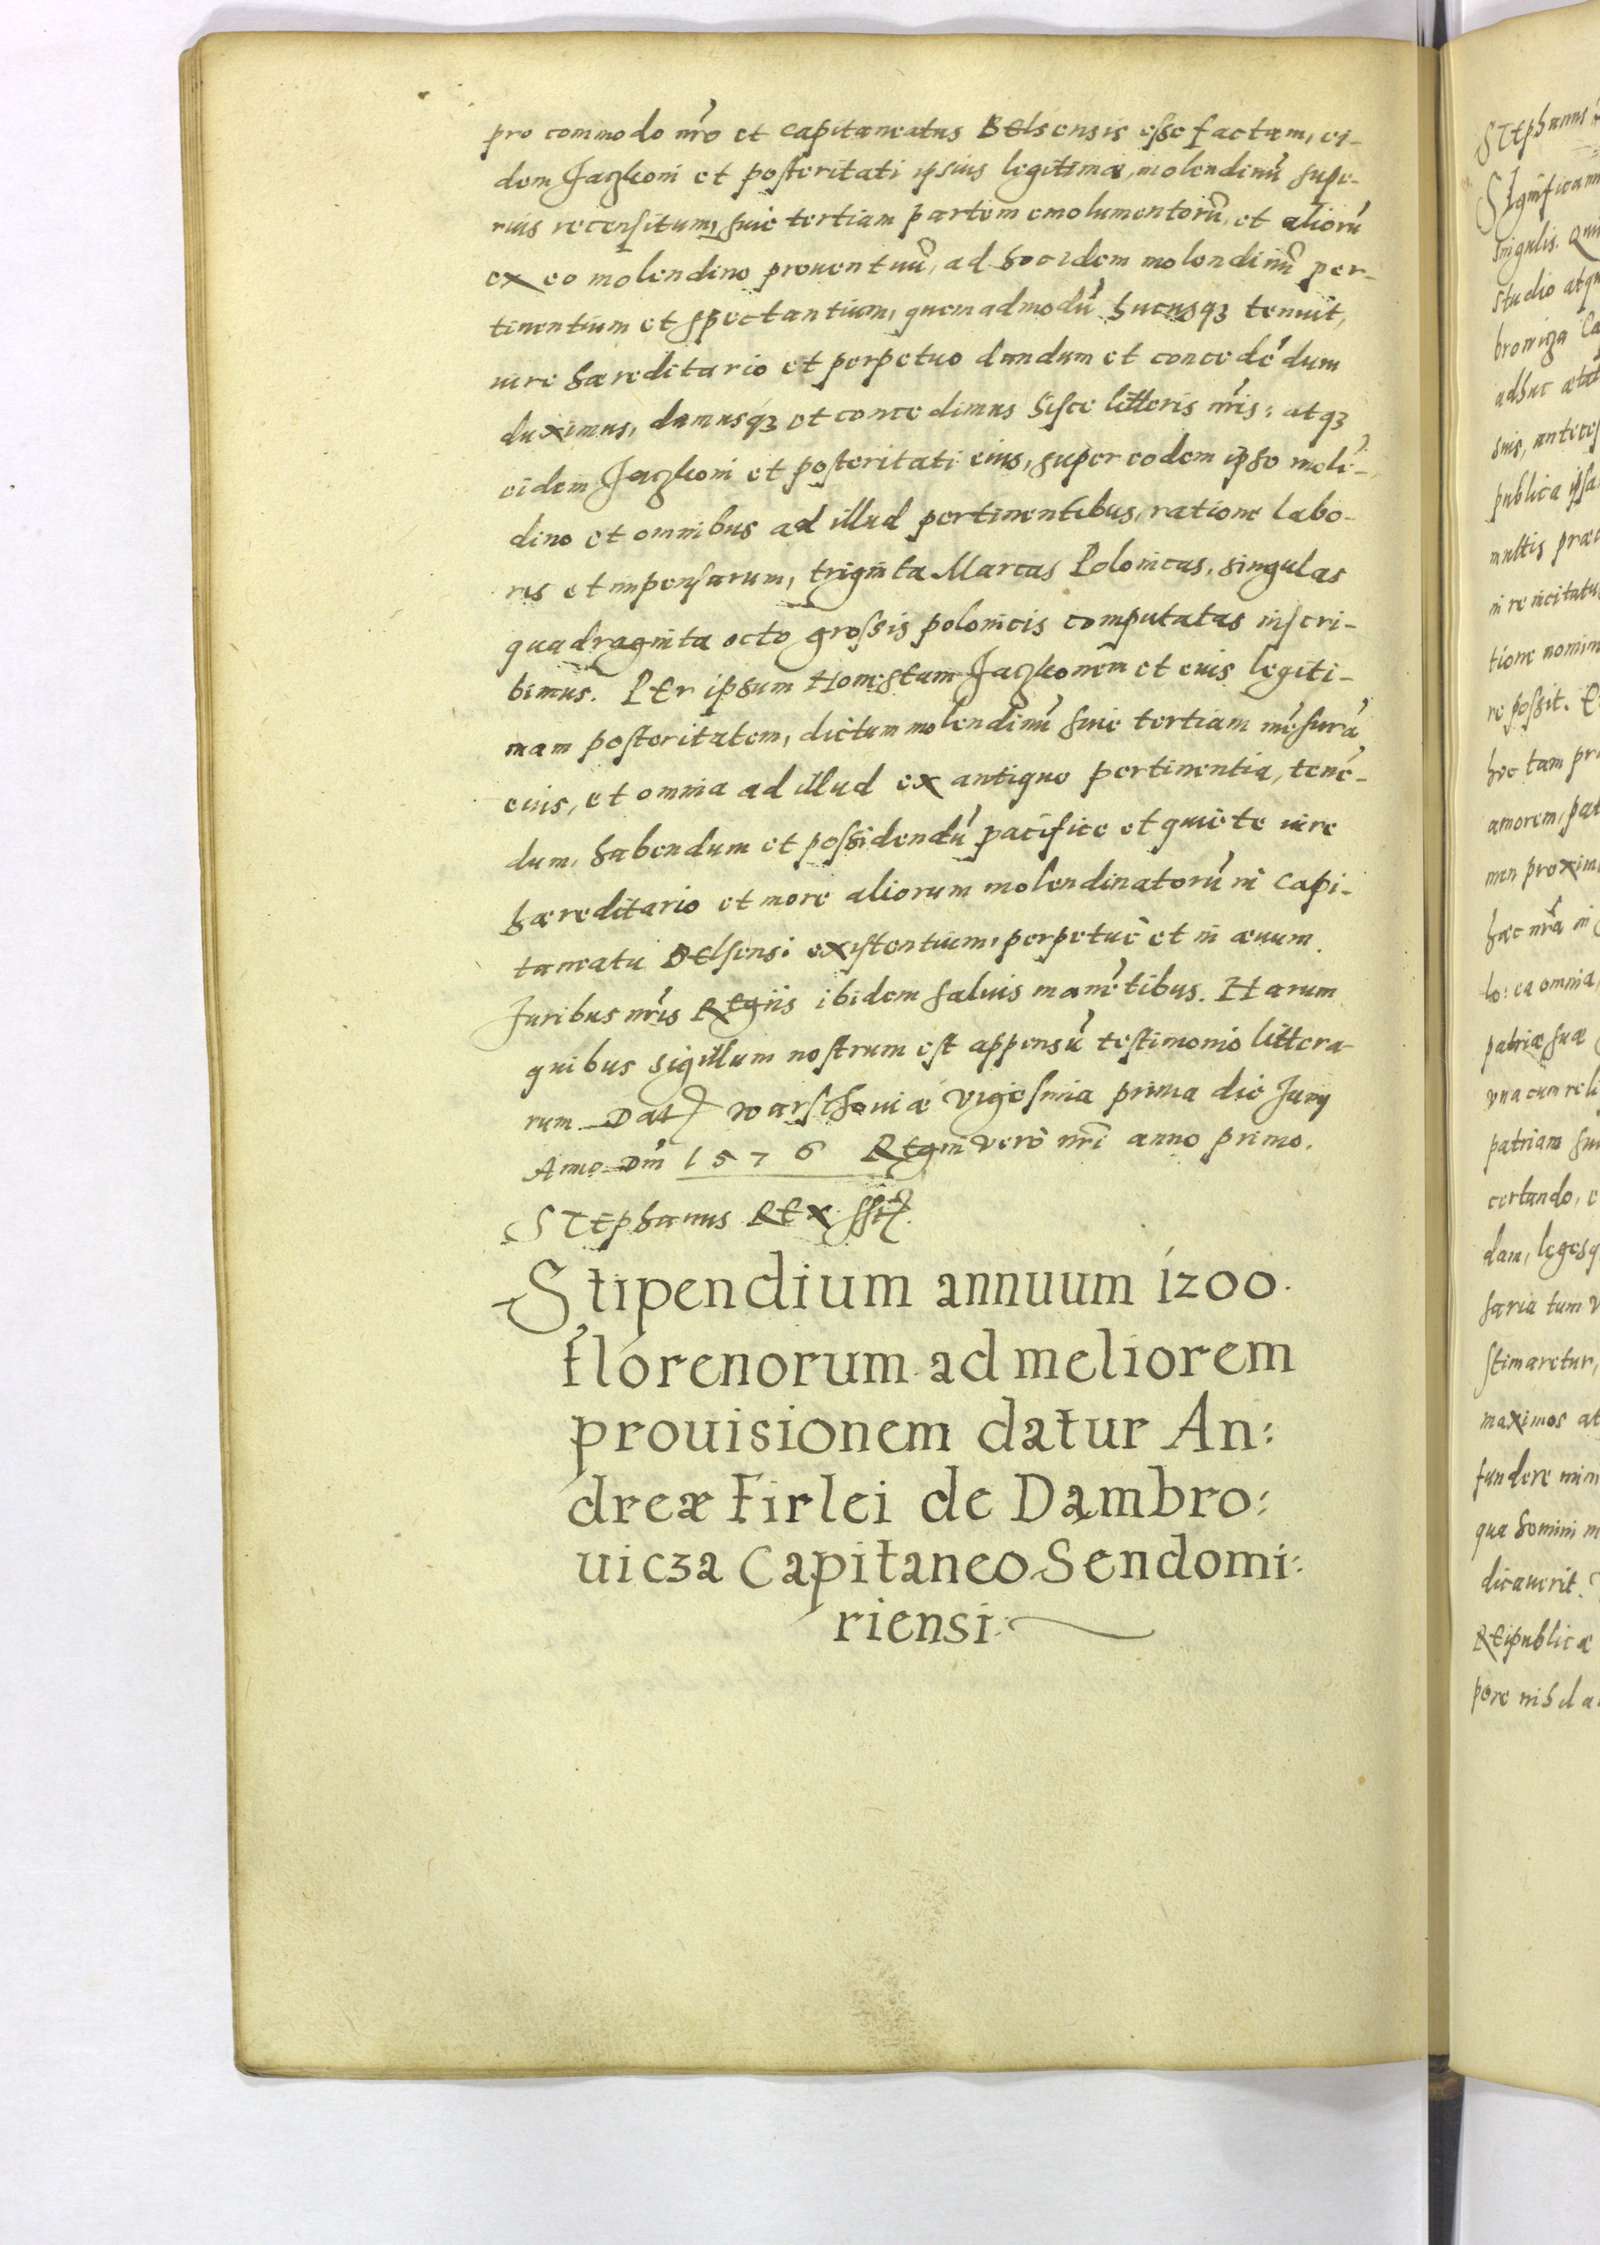 pro commodo nr̃o et capitaneatus BElsensis esse factam, ei-
dem Jaczkoni et posteritati ipsius legitimæ, molendinũ supe-
rius recensitum, siue tertiam partem emolumentorũ, et aliorũ
ex eo molendino prouentuũ, ad hoc idem molendinũ per-
tinentium et spectantium, quemadmodũ hucusqз tenuit,
iure hæreditario et perpetuo dandum et concedẽdum
duximus, damusqз et concedimus hisce litteris nr̃is: atqз
eidem Jaczkoni et posteritati eius, super eodem ipso molẽ-
dino et omnibus ad illud pertinentibus, ratione labo-
ris et impensarum, triginta Marcas Polonicas, singulas
quadraginta octo grossis polonicis computatas inscri-
bimus. PEr ipsum Honestum Jaczkonem et eius legiti-
mam posteritatem, dictum molendinũ siue tertiam mẽsurã
eius, et omnia ad illud ex antiquo pertinentia, tenẽ-
dum, habendum et possidendũ pacifice et quiete iure
hæreditario et more aliorum molendinatorũ in capi-
taneatu BElsensi existentium, perpetuè et in æuum.
Juribus nr̃is REgiis ibidem saluis manẽtibus. Harum
quibus sigillum nostrum est appensũ testimonio littera-
rum. Dat Warschouiæ vigesima prima die Junij
Anno Dni 1576 REgni verò nr̃i anno primo.
STEphanus REx sst.
Stipendium annuum 1200.
florenorum ad meliorem
prouisionem datur An:
dreæ Firlei de Dambro:
uicza Capitaneo Sendomi:
riensi.
STEphanus
SIgnificam
singulis. Qui
studio atqu
browicza Ca
adhuc ætat
suis, anteces
publica ipsa
multis præc
in re incitatu
tione nomin
re possit. Et
hoc tam pr
amorem, pat
men proxim
hæc nr̃a in
lo: ea omnia,
patriæ suæ
vna cum reli
patriam su
certando, e
dam, legesq
saria tum v
stimaretur,
maximos at
fundere min
qua homini m
dicauerit.
REipublicæ
pore nihil a